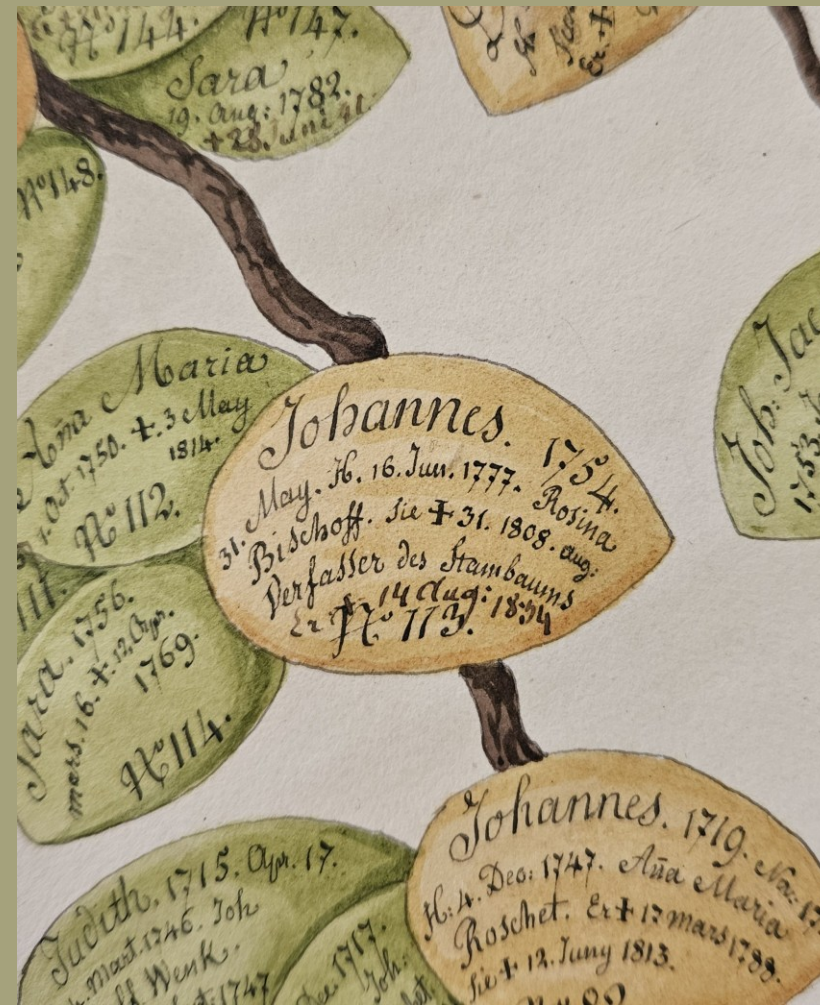 Nº 144.
Nº 147.
Sara
19. Aug: 1782.
Er +
Nº 148.
Aña Maria
Oct. 1750. +. 3 May
1814.
Nº 112.
Johannes. 1754.
31. May. H. 16. Jun. 1777. Rosina
Bischoff. sie + 31. 1808. aug:
Verfasser des Stambaums
Er + 14 Aug: 1834
Nº 113.
111.
Sara. 1756.
mars. 16. +. 12. Apr.
1769.
Nº 114.
Joh: Jac
1753.
Johannes. 1719. Nov: 17
H: 4. Dec: 1747. Aña Maria
Roschet. Er + 17 mars 1788.
sie + 12. Juny 1813.
Judith. 1715. Apr. 17.
Mart. 1746. Joh
Wenk.
1747
Dec. 1717.
Joh: